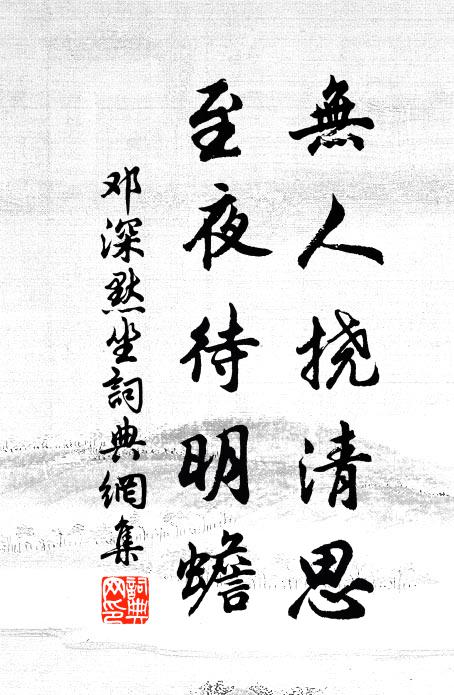 無人挠清思
至夜待明蟾
邓深默坐詞典網集
詞典网印